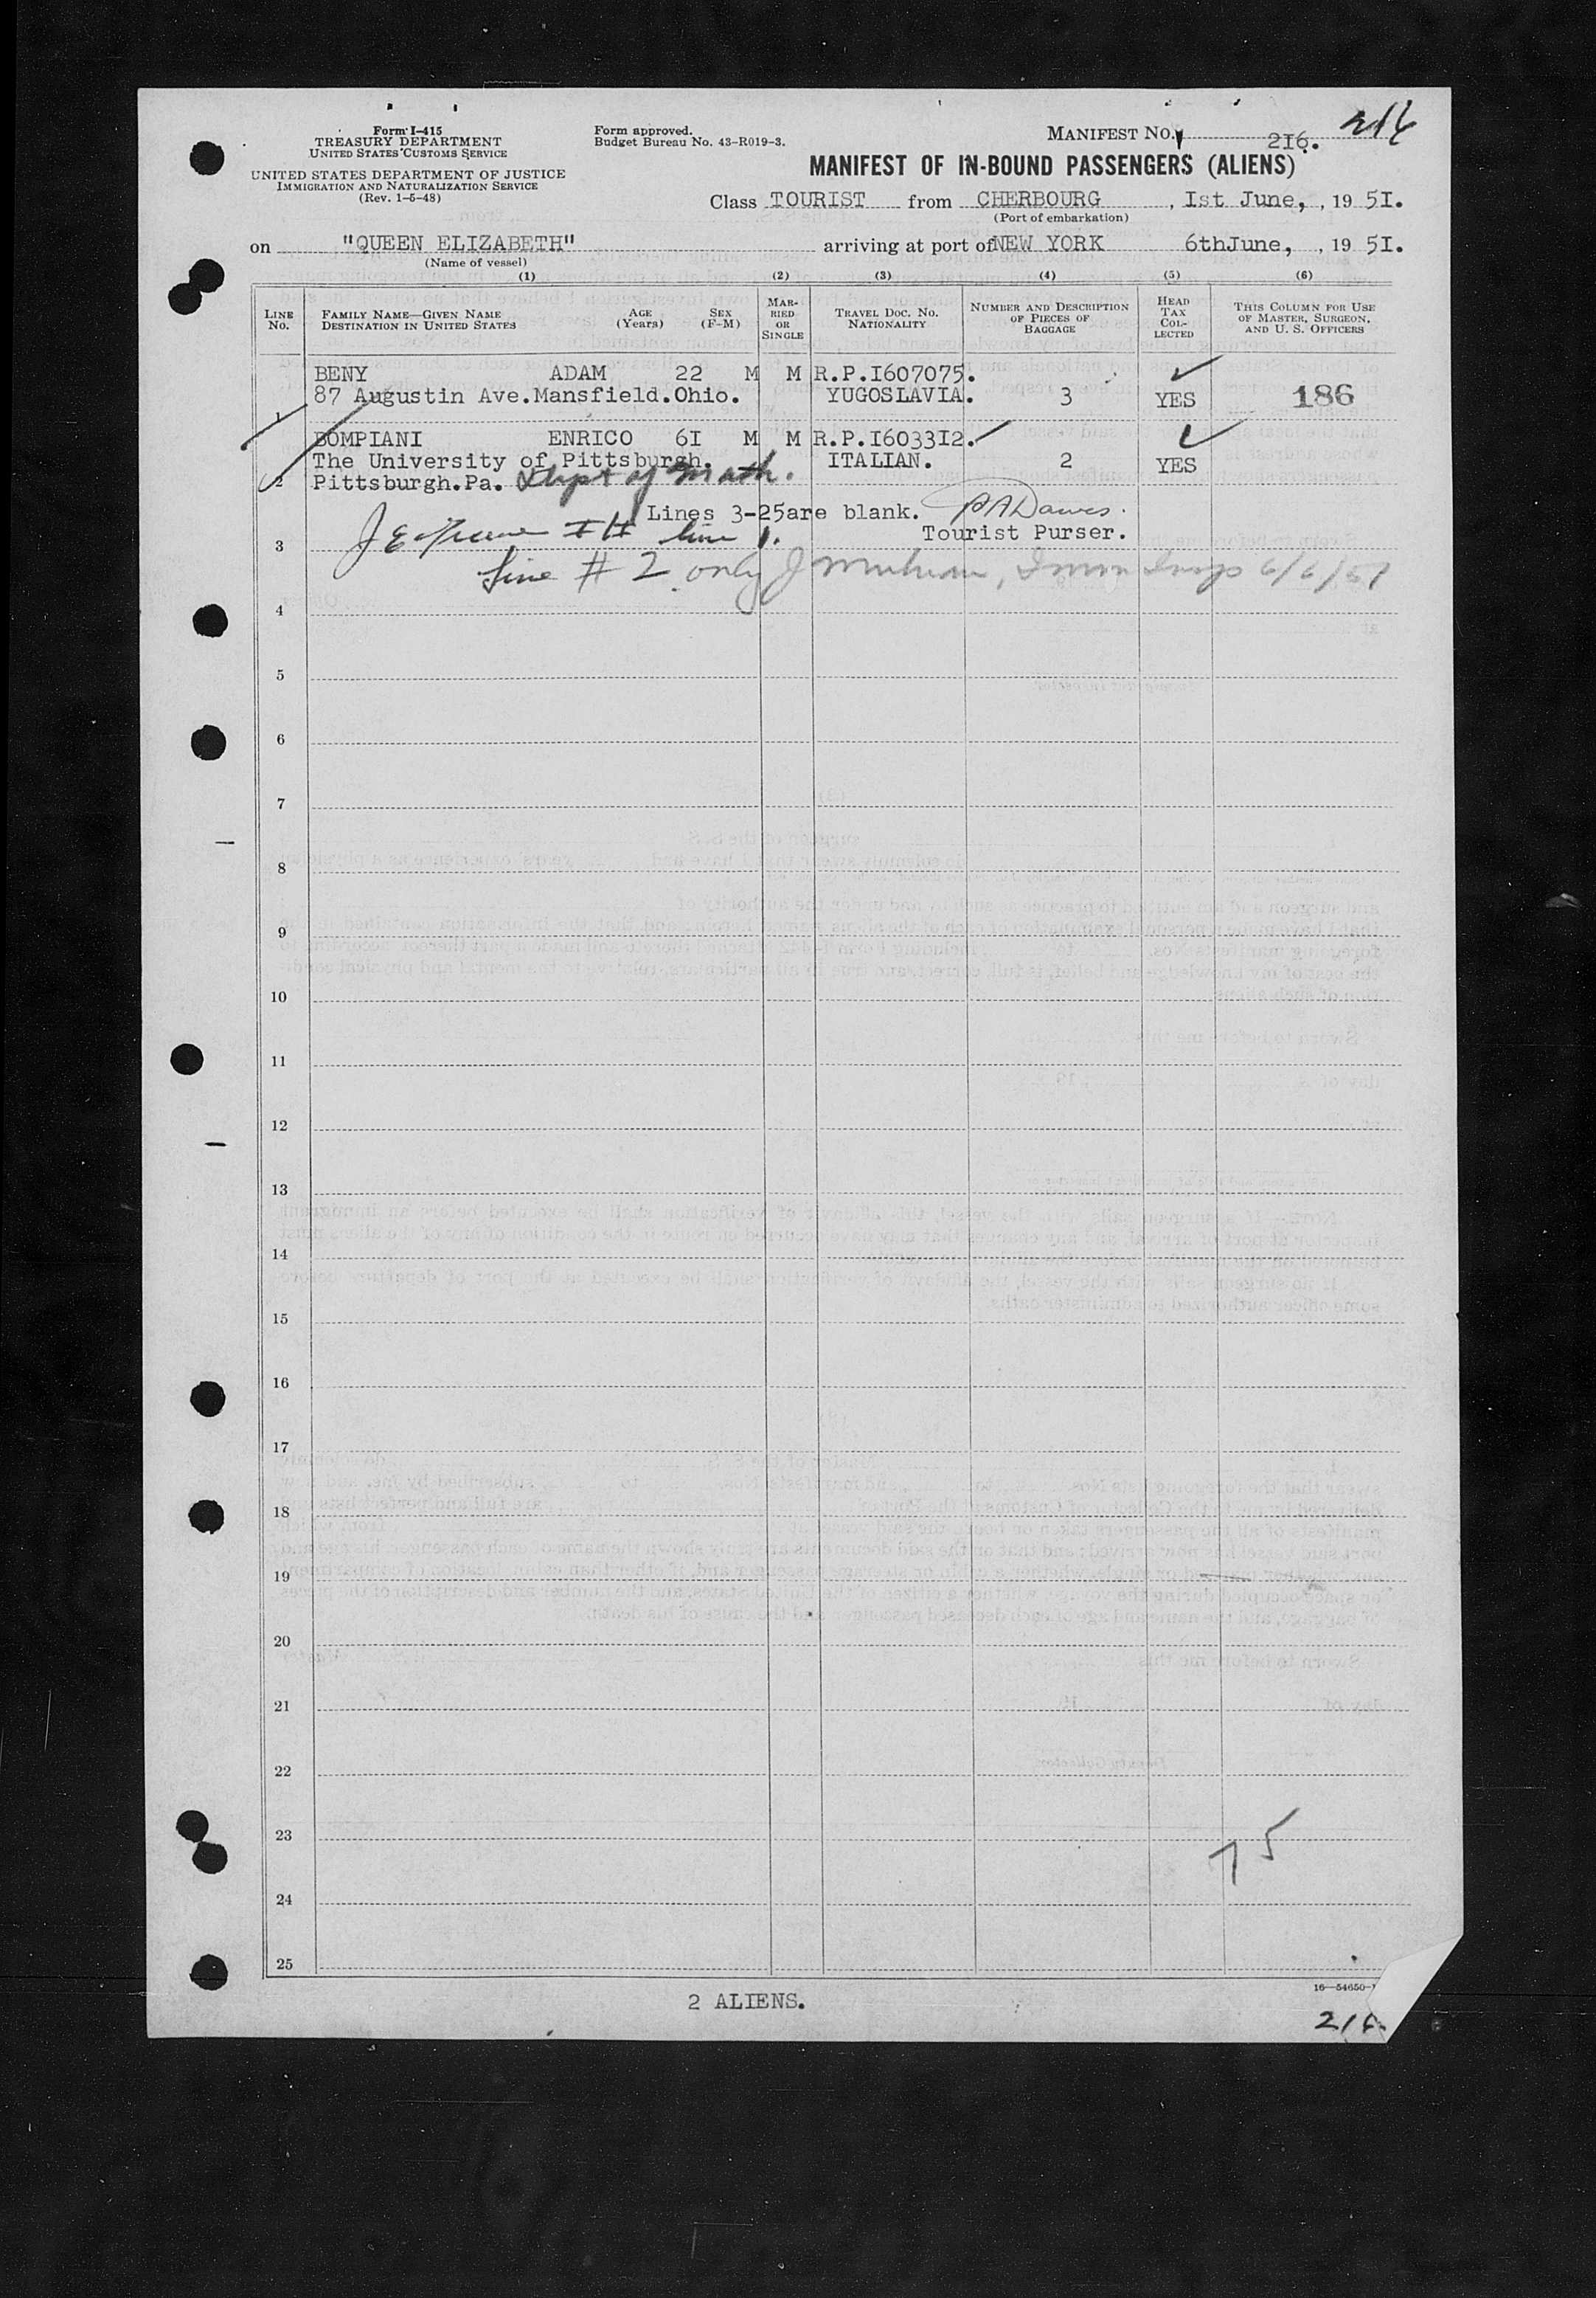 Form I-415
TREASURY DEPARTMENT
UNITED STATES CUSTOMS SERVICE
UNITED STATES DEPARTMENT OF JUSTICE
IMMIGRATION AND NATURALIZATION SERVICE
(Rev. 1-5-48)
Form approved.
Budget Bureau No. 43-R019-3.
MANIFEST No. 2I6. 216
MANIFEST OF IN-BOUND PASSENGERS (ALIENS)
Class TOURIST from CHERBOURG, Ist June, , 19 5I.
(Port of embarkation)
on "QUEEN ELIZABETH" arriving at port of NEW YORK 6thJune, , 19 5I.
(Name of vessel)
(1) (2) (3) (4) (5) (6)
LINE No. FAMILY NAME—GIVEN NAME DESTINATION IN UNITED STATES AGE (Years) SEX (F-M) MARRIED OR SINGLE TRAVEL DOC. NO. NATIONALITY NUMBER AND DESCRIPTION OF PIECES OF BAGGAGE HEAD TAX COLLECTED THIS COLUMN FOR USE OF MASTER, SURGEON, AND U. S. OFFICERS
BENY ADAM 22 M M R.P.I607075.
1 87 Augustin Ave.Mansfield.Ohio. YUGOSLAVIA. 3 YES 186
BOMPIANI ENRICO 6I M M R.P.I6033I2.
The University of Pittsburgh. ITALIAN. 2 YES
2 Pittsburgh.Pa. Dept of Math.
Lines 3-25are blank. PADawes.
line 1. Tourist Purser.
3
Line # 2 only J 6/6/51
4
5
6
7
8
9
10
11
12
13
14
15
16
17
18
19
20
21
22
23
75
24
25
16—54650-1
2 ALIENS.
216